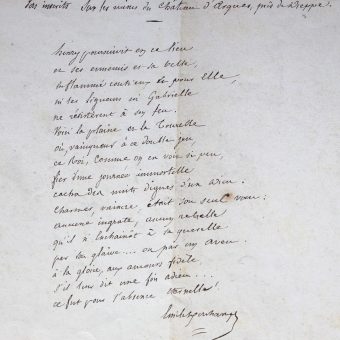 inscrits sur les ruines du château d'Arques, près de Dieppe.
henry poursuivit en ce lieu
et ses ennemis et sa belle,
enflammé contr'eux et pour elle,
ni les ligueurs ni Gabrielle
ne résistèrent à son feu.
Voici la plaine et la Tourelle
où, vainqueur à ce double jeu
ce Roi, comme on en voit si peu,
fier d'une journée immortelle
cacha des nuits dignes d'un dieu.
Charmer, vaincre, était son seul vœu:
aucune ingrate, aucun rebelle
qu'il n'enchaînât à sa querelle
par son glaive.... ou par un aveu.
à la gloire, aux amours fidèle,
s'il leur dit une fois adieu....
ce fut pour l'absence éternelle!
Emile Deschamps